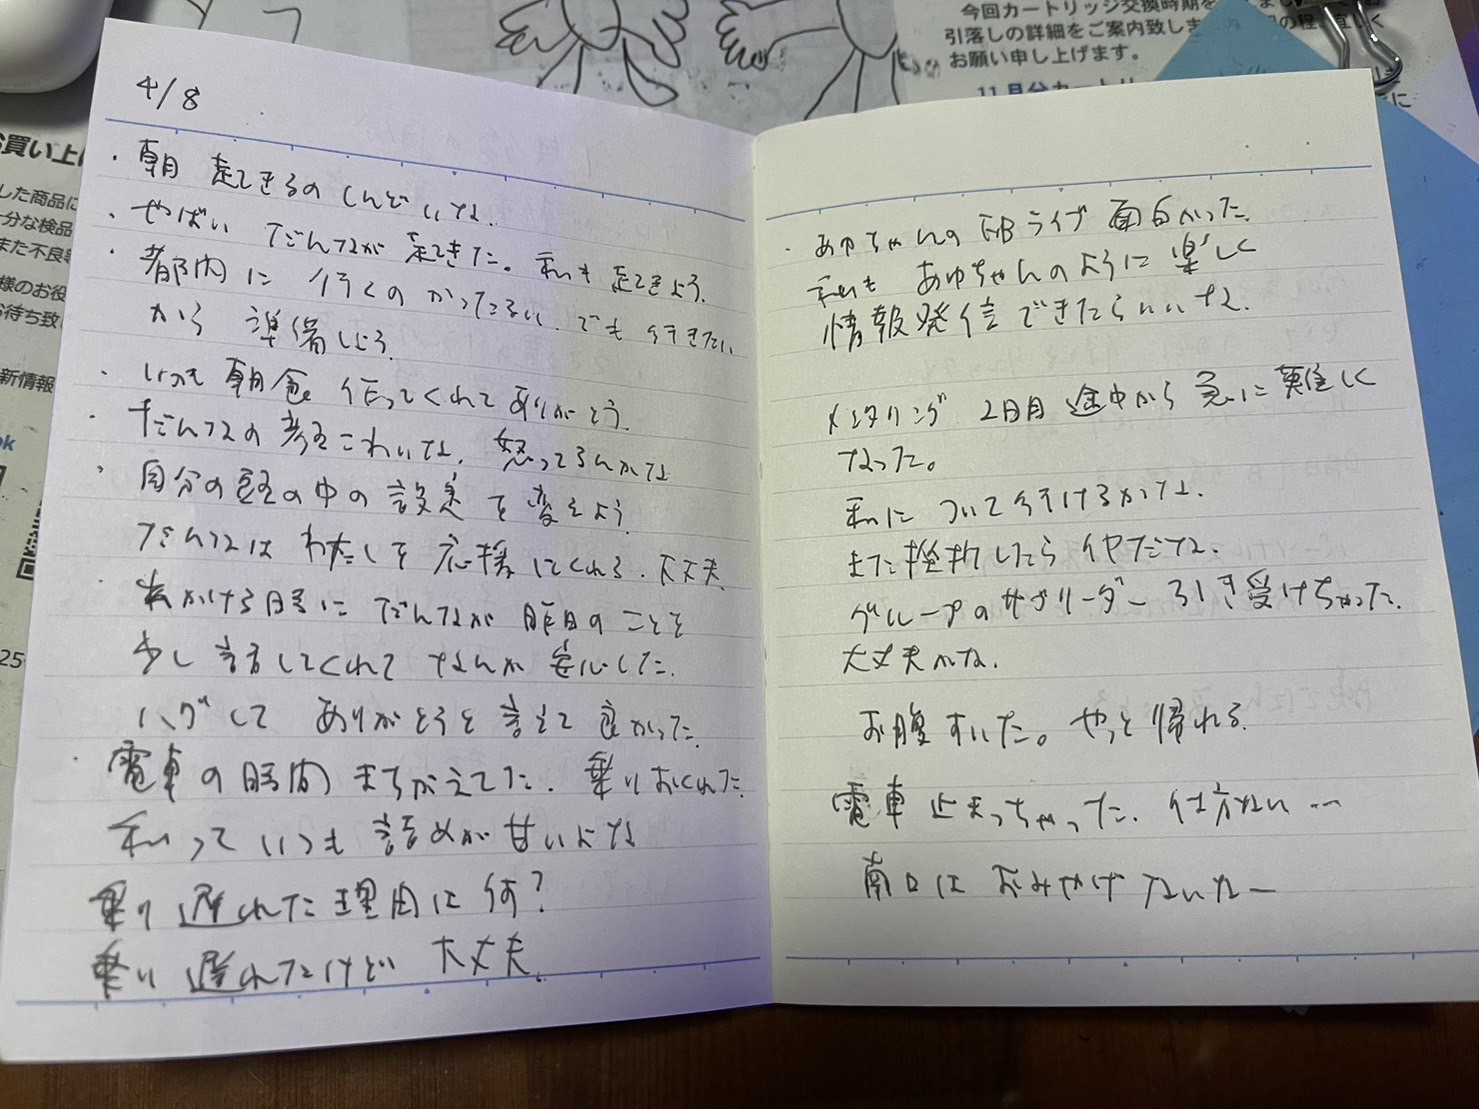 今回カートリッジ交換時期を
引落しの詳細をご案内致しま
お願い申し上げます。
11月分カートリ
買い上げ
した商品に
分な検品
また不良
様のお役
お待ち致
新情報
ok
25
4/8
・朝 起きるのしんどいな。
・やばい だんなが起きた。私も起きよう。
・都内に行くのかったるい。でも行きたい
から準備しよう。
・いつも朝食作ってくれてありがとう。
・だんなの考えこわいな。怒ってるんかな
・自分の頭の中の設定を変えよう
だんなはわたしを応援してくれる。大丈夫。
・出かける時にだんなが昨日のことを
少し話してくれてなんか安心した。
ハグしてありがとうを言えて良かった。
・電車の時間まちがえてた。乗りおくれた。
私っていつも詰めが甘いよな
乗り遅れた理由は何?
乗り遅れたけど大丈夫。
・あゆちゃんのFBライブ面白かった。
私もあゆちゃんのように楽しく
情報発信できたらいいな。
メンタリング 2日目途中から急に難しく
なった。
私について行けるかな。
また挫折したらイヤだな。
グループのサブリーダー引き受けちゃった。
大丈夫かな。
お腹すいた。やっと帰れる。
電車止まっちゃった。仕方ない…
南口はおみやげないなー